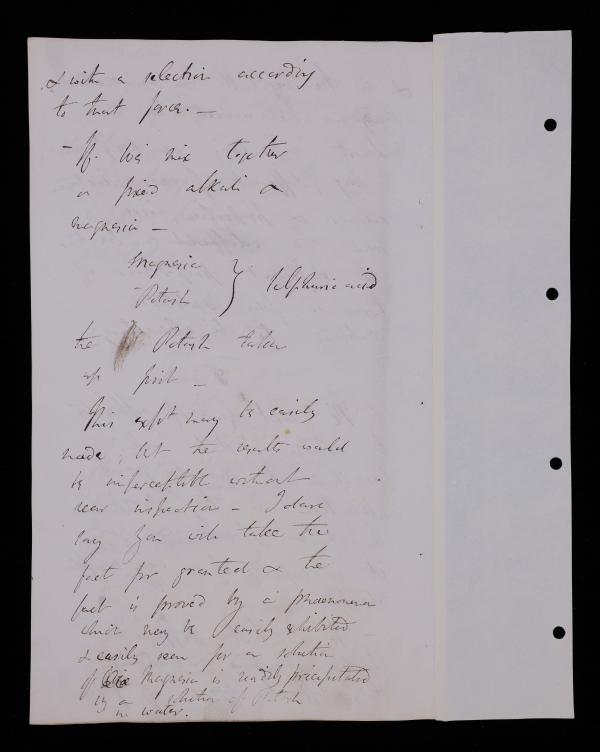 & with a selection according
to that force. —
– If we mix together
a fixed alkali &
magnesia –
Magnesia
Potash } Sulphuric acid
the Potash taken
up first –
This expt may be easily
made, but the results would
be imperceptible without
near inspection – I dare
say you will take the
fact for granted & the
fact is proved by a phaenomenon
which may be easily exhibited
& easily seen for a solution
of Magnesia is readily precipitated
by a solution of Potash
in water.